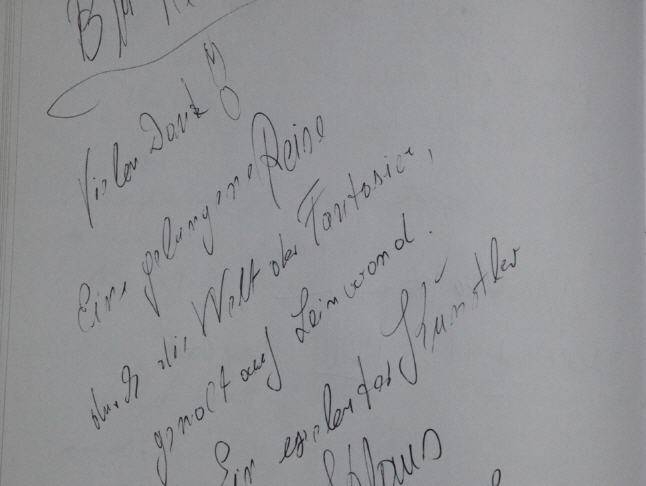 Vielen Dank!!
Eine gelungene Reise
durch die Welt der Fantasie,
gemalt auf Leinwand.
Ein exelenter Künstler